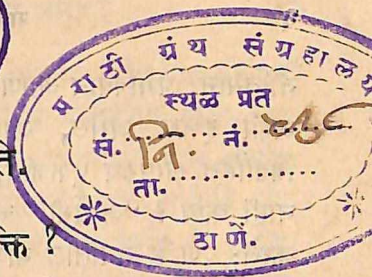 मराठी ग्रंथ संग्रहालय
स्थळ प्रत
सं. नि. नं.
ता.
ठाणें.
ते.
क्ति ?